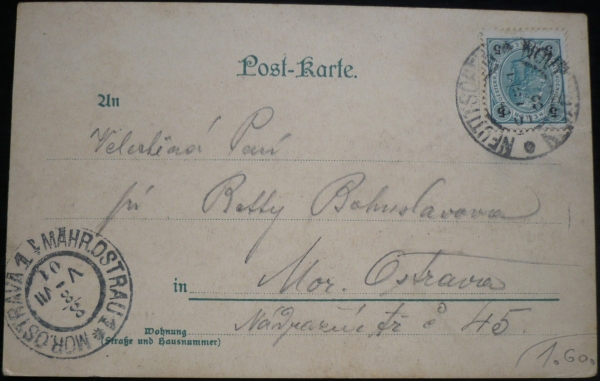 Post-Karte.
An
Velectěná Paní
pí Betty Bohuslavova
in Mor. Ostrava
Nádražní tř č 45.
Wohnung
(Straße und Hausnummer)
MÄHR.OSTRAU 1
MOR.OSTRAVA 1
NEUTITSCHEIN
5 5
1.60.